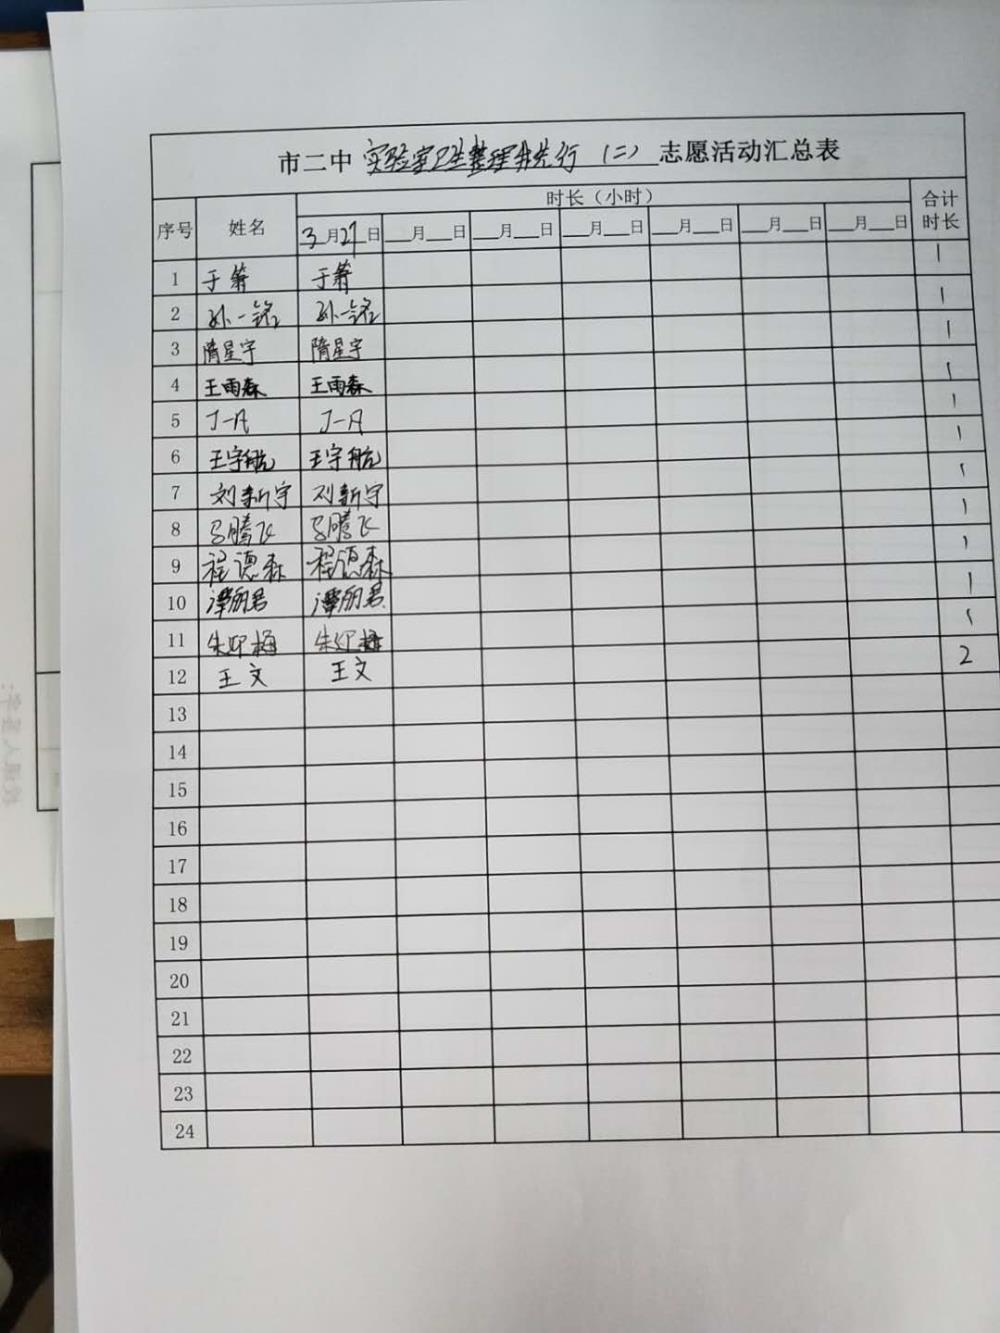 市二中 实验室卫生整理我先行（二） 志愿活动汇总表
序号 姓名 时长（小时） 合计时长
3月27日 __月__日 __月__日 __月__日 __月__日 __月__日 __月__日
1 于箫 于箫 1
2 孙一铭 孙一铭 1
3 隋星宇 隋星宇 1
4 王雨森 王雨森 1
5 丁一凡 丁一凡 1
6 王宇航 王宇航 1
7 刘新宇 刘新宇 1
8 马腾飞 马腾飞 1
9 程德森 程德森 1
10 谭朋君 谭朋君 1
11 朱迎梅 朱迎梅 1
12 王文 王文 2
13
14
15
16
17
18
19
20
21
22
23
24